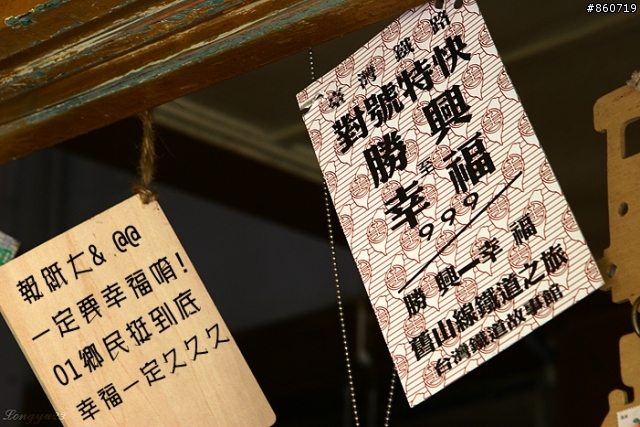 #860719
報紙大& @@
一定要幸福唷!
01鄉民挺到底
幸福一定久久久
臺灣鐵路
對號特快
勝興
至
幸福
999
勝興—幸福
舊山線鐵道之旅
台灣鐵道故事館